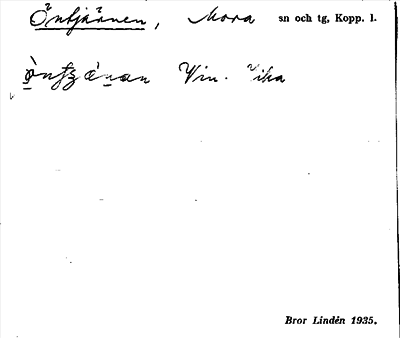 Öntjärnen, Mora sn och tg, Kopp. l.
Vin. Vika
Bror Lindén 1935.